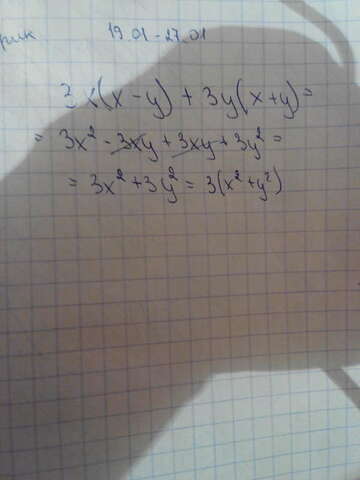 19.01-27.01
3x(x-y) + 3y(x+y)=
= 3x² - 3xy + 3xy + 3y² =
= 3x² + 3y² = 3(x² + y²)